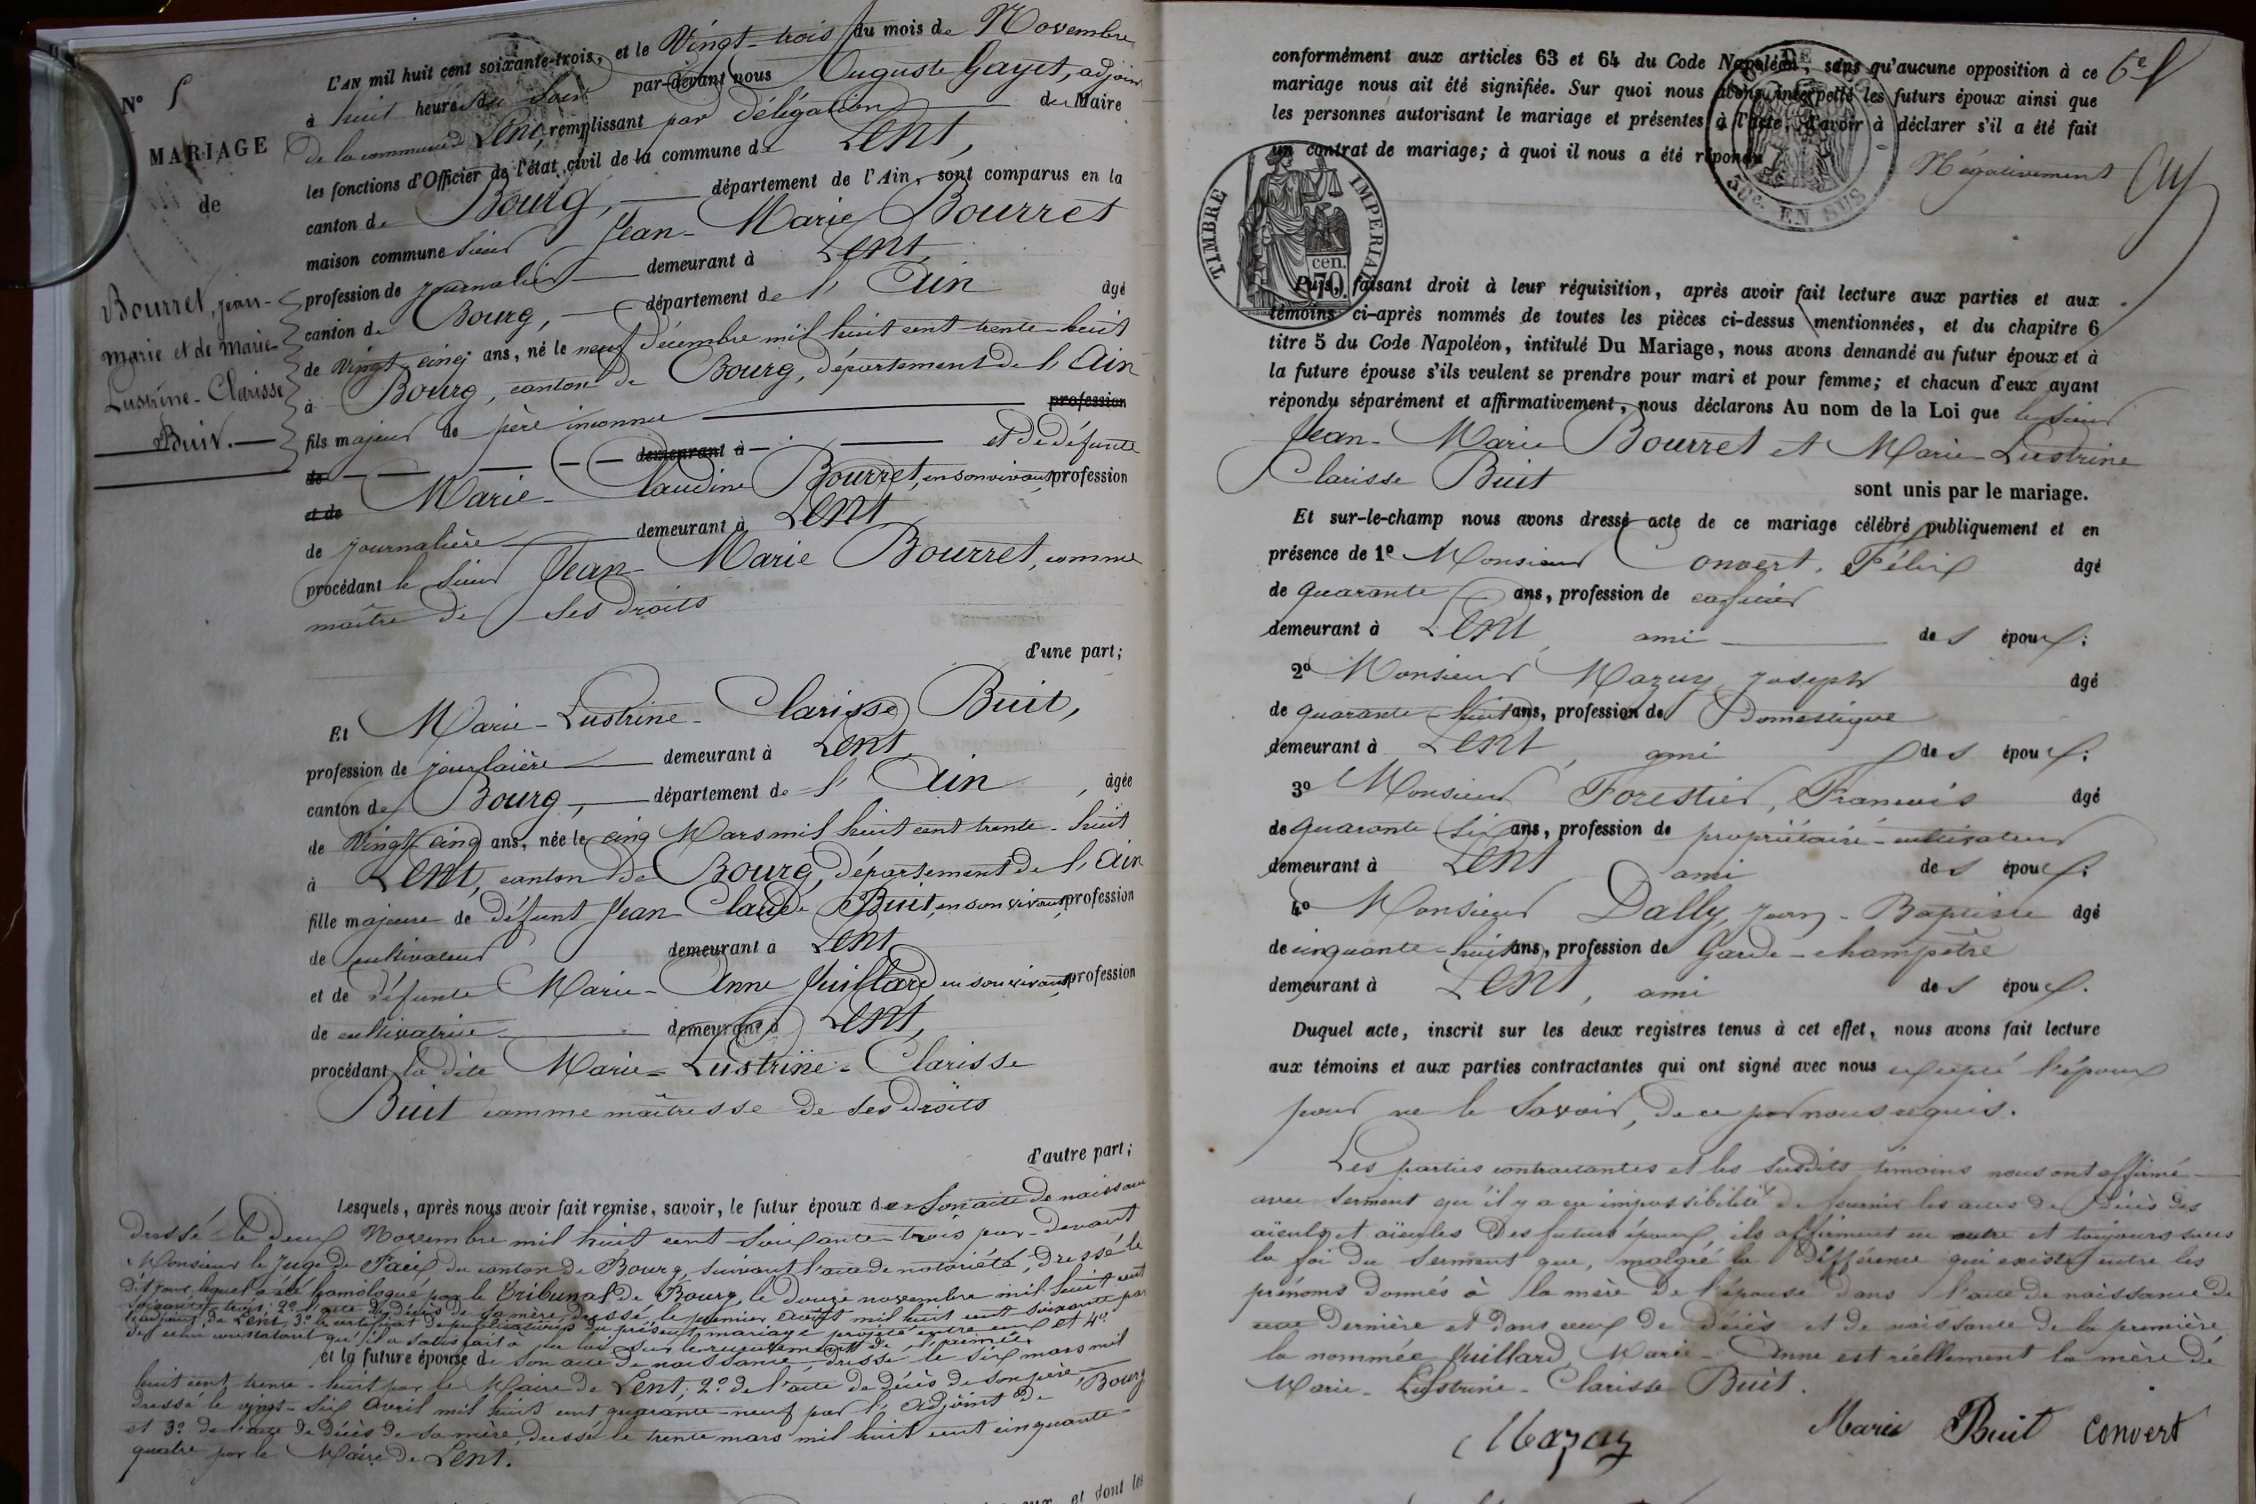 N° 5
MARIAGE
de
Bourret, jean-
marie et de marie-
Lustrine-Clarisse
Buit.
L'AN mil huit cent soixante-trois, et le Vingt-trois du mois de Novembre
à huit heures du soir par-devant nous Auguste Gayet, adjoint
de la commune de Lent, remplissant par délégation du Maire
les fonctions d'Officier de l'état civil de la commune de Lent,
canton de Bourg, département de l'Ain, sont comparus en la
maison commune sieur Jean-Marie Bourret
profession de journalier demeurant à Lent,
canton de Bourg, département de l'Ain âgé
de Vingt-cinq ans, né le neuf décembre mil huit cent trente-huit
à Bourg, canton de Bourg, département de l'Ain
fils majeur de père inconnu profession
de demeurant à et de défunte
et de Marie-Claudine Bourret, en son vivant profession
de journalière demeurant à Lent
procédant le sieur Jean-Marie Bourret, comme
maître de ses droits
d'une part;
Et Marie-Lustrine-Clarisse Buit,
profession de jourlaière demeurant à Lent,
canton de Bourg, département de l'Ain, âgée
de Vingt-cinq ans, née le cinq Mars mil huit cent trente-huit
à Lent, canton de Bourg, département de l'Ain
fille majeure de défunt Jean Claude Buit, en son vivant profession
de cultivateur demeurant à Lent
et de défunte Marie-Anne Juillard en son vivant profession
de cultivatrice demeurant à Lent,
procédant la dite Marie-Lustrine-Clarisse
Buit comme maîtresse de ses droits
d'autre part;
Lesquels, après nous avoir fait remise, savoir, le futur époux de 1° Son acte de naissance
dressé le deux Novembre mil huit cent soixante-trois par-devant
Monsieur le Juge de Paix du canton de Bourg, suivant l'acte de notoriété, dressé le
dit jour, lequel a été homologué par le Tribunal de Bourg, le douze novembre mil huit cent
soixante-trois; 2° l'acte de décès de sa mère, dressé le premier août mil huit cent soixante par
l'adjoint de Lent, 3° le certificat de publications du présent mariage projeté entre eux et 4°
de celui constatant qu'il a satisfait à la loi sur le recrutement de l'armée
et la future épouse de son acte de naissance, dressé le six mars mil
huit cent trente-huit par le Maire de Lent; 2° de l'acte de décès de son père
dressé le vingt-six Avril mil huit cent quarante-neuf par l'Adjoint de Bourg
et 3° de l'acte de décès de sa mère, dressé le trente mars mil huit cent cinquante-
quatre par le Maire de Lent.
et dont les
conformément aux articles 63 et 64 du Code Napoléon, sans qu'aucune opposition à ce
mariage nous ait été signifiée. Sur quoi nous avons interpellé les futurs époux ainsi que
les personnes autorisant le mariage et présentes à l'acte, d'avoir à déclarer s'il a été fait
un contrat de mariage; à quoi il nous a été répondu
Négativement
EN SUS
TIMBRE IMPERIAL
70 cen.
Puis, faisant droit à leur réquisition, après avoir fait lecture aux parties et aux
témoins ci-après nommés de toutes les pièces ci-dessus mentionnées, et du chapitre 6
titre 5 du Code Napoléon, intitulé Du Mariage, nous avons demandé au futur époux et à
la future épouse s'ils veulent se prendre pour mari et pour femme; et chacun d'eux ayant
répondu séparément et affirmativement, nous déclarons Au nom de la Loi que le sieur
Jean-Marie Bourret et Marie-Lustrine
Clarisse Buit
sont unis par le mariage.
Et sur-le-champ nous avons dressé acte de ce mariage célébré publiquement et en
présence de 1° Monsieur Convert, Félix âgé
de quarante ans, profession de cafetier
demeurant à Lent, ami des époux;
2° Monsieur Mazuy, Joseph âgé
de quarante-huit ans, profession de Domestique
demeurant à Lent, ami des époux;
3° Monsieur Forestier, François âgé
de quarante-six ans, profession de propriétaire-cultivateur
demeurant à Lent ami des époux;
4° Monsieur Dally, Jean-Baptiste âgé
de cinquante-huit ans, profession de Garde-champêtre
demeurant à Lent, ami des époux.
Duquel acte, inscrit sur les deux registres tenus à cet effet, nous avons fait lecture
aux témoins et aux parties contractantes qui ont signé avec nous excepté l'époux
pour ne le savoir, de ce par nous requis.
Les parties contractantes et les susdits témoins nous ont affirmé
avec serment qu'il y a eu impossibilité de fournir les actes de décès des
aïeuls et aïeules des futurs époux, ils affirment en outre et toujours sous
la foi du serment que, malgré la différence qui existe entre les
prénoms donnés à la mère de l'épouse dans l'acte de naissance de
cette dernière et dans ceux de décès et de naissance de la première
la nommée Juillard, Marie-Anne est réellement la mère de
Marie-Lustrine-Clarisse Buit.
Mazuy Marie Buit Convert